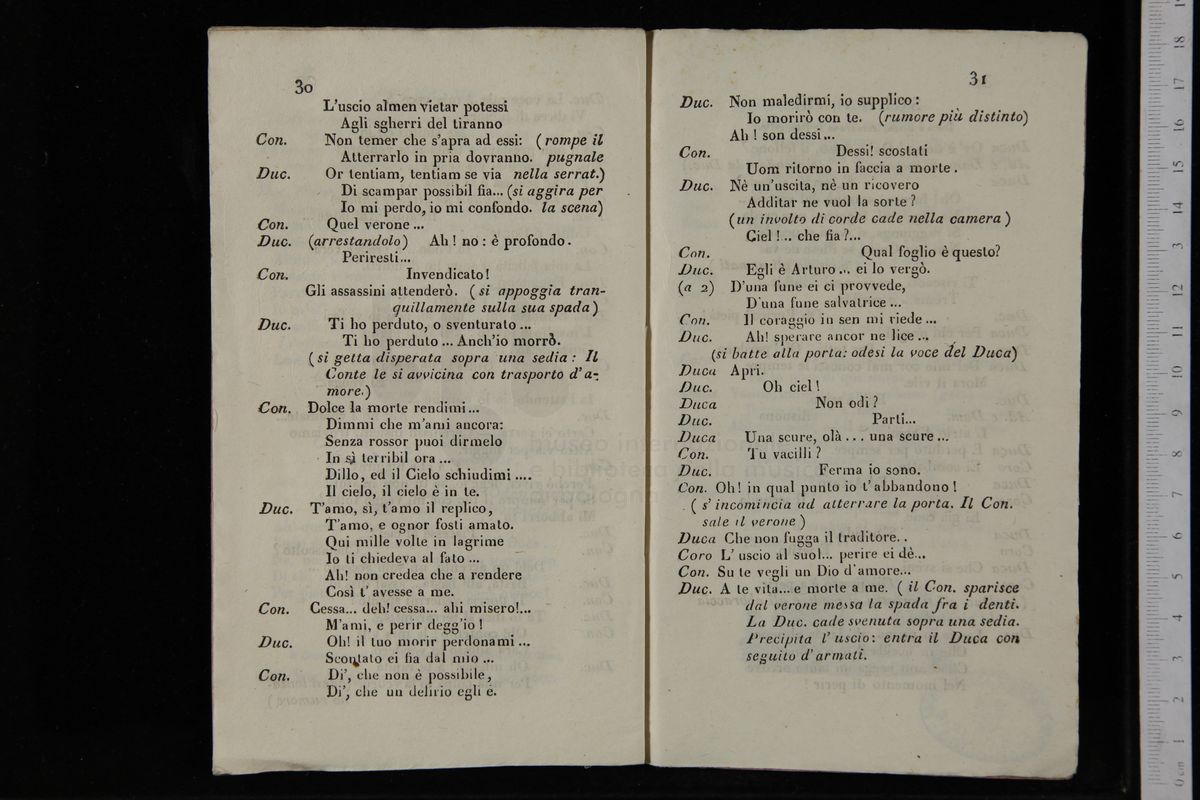 30
L'uscio almen vietar potessi
Agli sgherri del tiranno
Con. Non temer che s'apra ad essi: (rompe il
Atterrarlo in pria dovranno. pugnale
Duc. Or tentiam, tentiam se via nella serrat.)
Di scampar possibil fia... (si aggira per
Io mi perdo, io mi confondo. la scena)
Con. Quel verone ...
Duc. (arrestandolo) Ah! no: è profondo.
Periresti...
Con. Invendicato!
Gli assassini attenderò. (si appoggia tran-
quillamente sulla sua spada)
Duc. Ti ho perduto, o sventurato ...
Ti ho perduto ... Anch'io morrò.
(si getta disperata sopra una sedia: Il
Conte le si avvicina con trasporto d'a-
more.)
Con. Dolce la morte rendimi ...
Dimmi che m'ami ancora:
Senza rossor puoi dirmelo
In sì terribil ora ...
Dillo, ed il Cielo schiudimi ....
Il cielo, il cielo è in te.
Duc. T'amo, sì, t'amo il replico,
T'amo, e ognor fosti amato.
Qui mille volte in lagrime
Io ti chiedeva al fato ...
Ah! non credea che a rendere
Così t'avesse a me.
Con. Cessa... deh! cessa... ahi misero!...
M'ami, e perir degg'io!
Duc. Oh! il tuo morir perdonami ...
Scontato ei fia dal mio ...
Con. Di', che non è possibile,
Di', che un delirio egli è.
31
Duc. Non maledirmi, io supplico:
Io morirò con te. (rumore più distinto)
Ah! son dessi...
Con. Dessi! scostati
Uom ritorno in faccia a morte.
Duc. Nè un'uscita, nè un ricovero
Additar ne vuol la sorte?
(un involto di corde cade nella camera)
Ciel!.. che fia?...
Con. Qual foglio è questo?
Duc. Egli è Arturo ... ei lo vergò.
(a 2) D'una fune ei ci provvede,
D'una fune salvatrice ...
Con. Il coraggio in sen mi riede ...
Duc. Ah! sperare ancor ne lice ...
(si batte alla porta: odesi la voce del Duca)
Duca Apri.
Duc. Oh ciel!
Duca Non odi?
Duc. Parti...
Duca Una scure, olà ... una scure ...
Con. Tu vacilli?
Duc. Ferma io sono.
Con. Oh! in qual punto io t'abbandono!
(s'incomincia ad atterrare la porta. Il Con.
sale il verone)
Duca Che non fugga il traditore..
Coro L'uscio al suol... perire ei dè...
Con. Su te vegli un Dio d'amore...
Duc. A te vita... e morte a me. (il Con. sparisce
dal verone messa la spada fra i denti.
La Duc. cade svenuta sopra una sedia.
Precipita l'uscio: entra il Duca con
seguito d'armati.